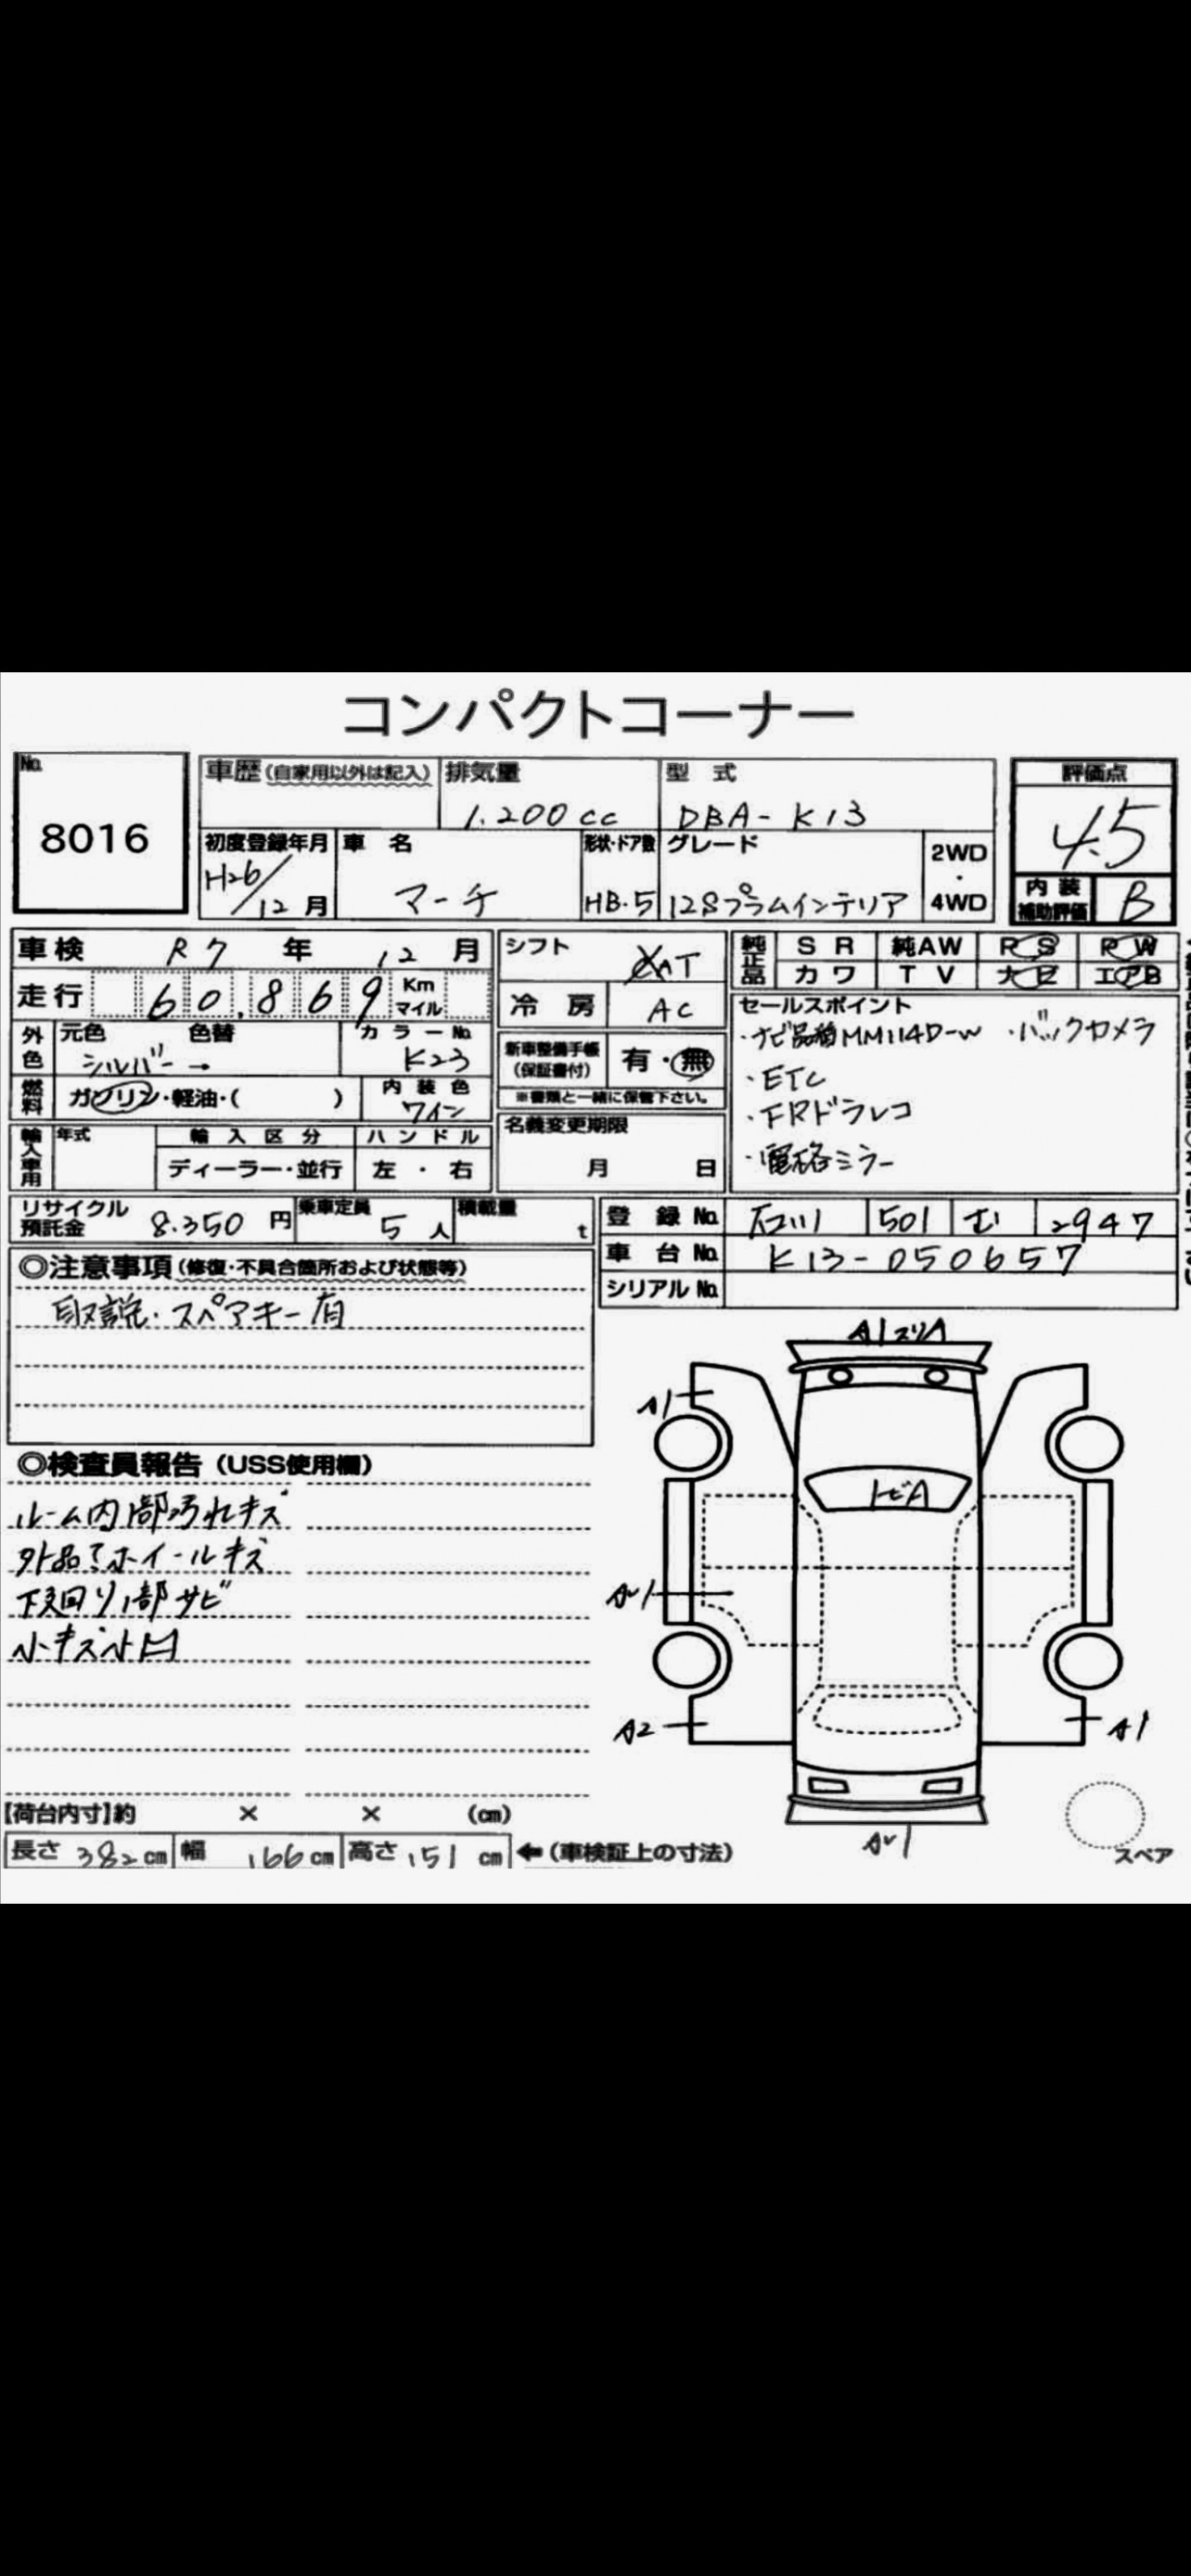 コンパクトコーナー
No.
8016
車歴 (自家用以外は記入)
排気量
1.200cc
型 式
DBA-K13
評価点
4.5
初度登録年月
H26/12月
車 名
マーチ
形状・ドア数
HB・5
グレード
12Sプラムインテリア
2WD
・
4WD
内装
補助評価
B
車検 R7年 12月
走行 60,869 Km
マイル
シフト
AT
冷 房 AC
純正品 SR 純AW PS PW
カワ TV ナビ エアB
外色 元色 色替 カラーNo.
シルバー → K23
燃料 ガソリン・軽油・( ) 内装色
ワイン
新車整備手帳
(保証書付)
有・無
※書類と一緒に保管下さい。
名義変更期限
月 日
セールスポイント
・ナビ品番MM114D-W ・バックカメラ
・ETC
・FRドラレコ
・電格ミラー
輸入車用 年式 輸入区分 ハンドル
ディーラー・並行 左・右
リサイクル
預託金 8.350円
乗車定員
5人
積載量
t
登録No. 石川 501 む 2947
車台No. K13-050657
シリアルNo.
◎注意事項(修復・不具合箇所および状態等)
取説・スペアキー有
◎検査員報告(USS使用欄)
ルーム内1部汚れキズ
外品?ホイールキズ
下廻り1部サビ
小キズ小凹
A1 スリA
A1
トビA
A2
A1
スペア
【荷台内寸】約 × × (cm)
長さ 382cm 幅 166cm 高さ 151cm ←(車検証上の寸法)